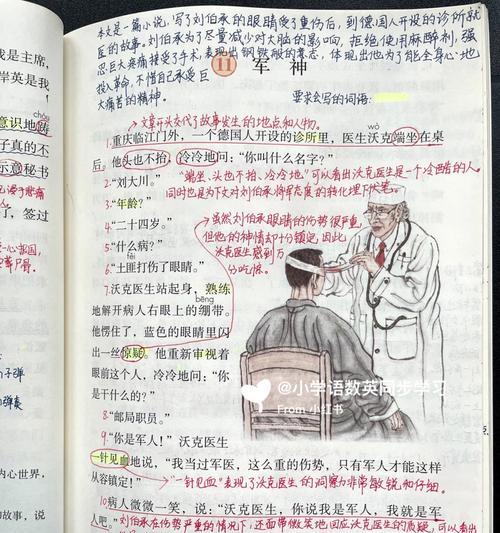 本文是一篇小说，写了刘伯承的眼睛受了重伤后，到德国人开设的诊所就
医的故事。刘伯承为了尽量减少对大脑的影响，拒绝使用麻醉剂，强
忍巨大疼痛接受了手术，表现出钢铁般的意志，体现出他为了能全身心地
投入革命，不惜自己承受巨
大痛苦的精神。
11 军神
要求会写的词语：
文章开头交代了故事发生的地点和人物。
wò
1.重庆临江门外，一个德国人开设的诊所里，医生沃克端坐在桌
后。他头也不抬，冷冷地问：“你叫什么名字？”
2.“刘大川。”
“端坐、头也不抬、冷冷地”可以看出沃克医生是一个冷酷的人。
同时也是为下文对刘伯承将军态度的转化埋下伏笔。
3.“年龄？”
4.“二十四岁。”
虽然刘伯承眼睛的伤势很严重，
但他的神情却十分镇定，因此
沃克医生感到万
分吃惊。
5.“什么病？”
fěi
6.“土匪打伤了眼睛。”
7.沃克医生站起身，熟练
bēng
地解开病人右眼上的绷带。
他愣住了，蓝色的眼睛里闪
出一丝惊疑。他重新审视着
眼前这个人，冷冷地问：“你
是干什么的？”
8.“邮局职员。”
9.“你是军人！”沃克医生
一针见血地说，“我当过军医，这么重的伤势，只有军人才能这样
从容镇定！”
“一针见血”表现了沃克医生的洞察力非常敏锐和仔细。
10.病人微微一笑，说：“沃克医生，你说我是军人，我就是军
人吧。”
刘伯承在伤势严重的情况下，还面带微笑地回应沃克医生的质疑，可以看出
是我主席，
岸英是我
chóu
意识地踌
子真的不
示意秘书
了，签过
内心世界，
的故事，说
@小学语数英同步学习
From 小红书